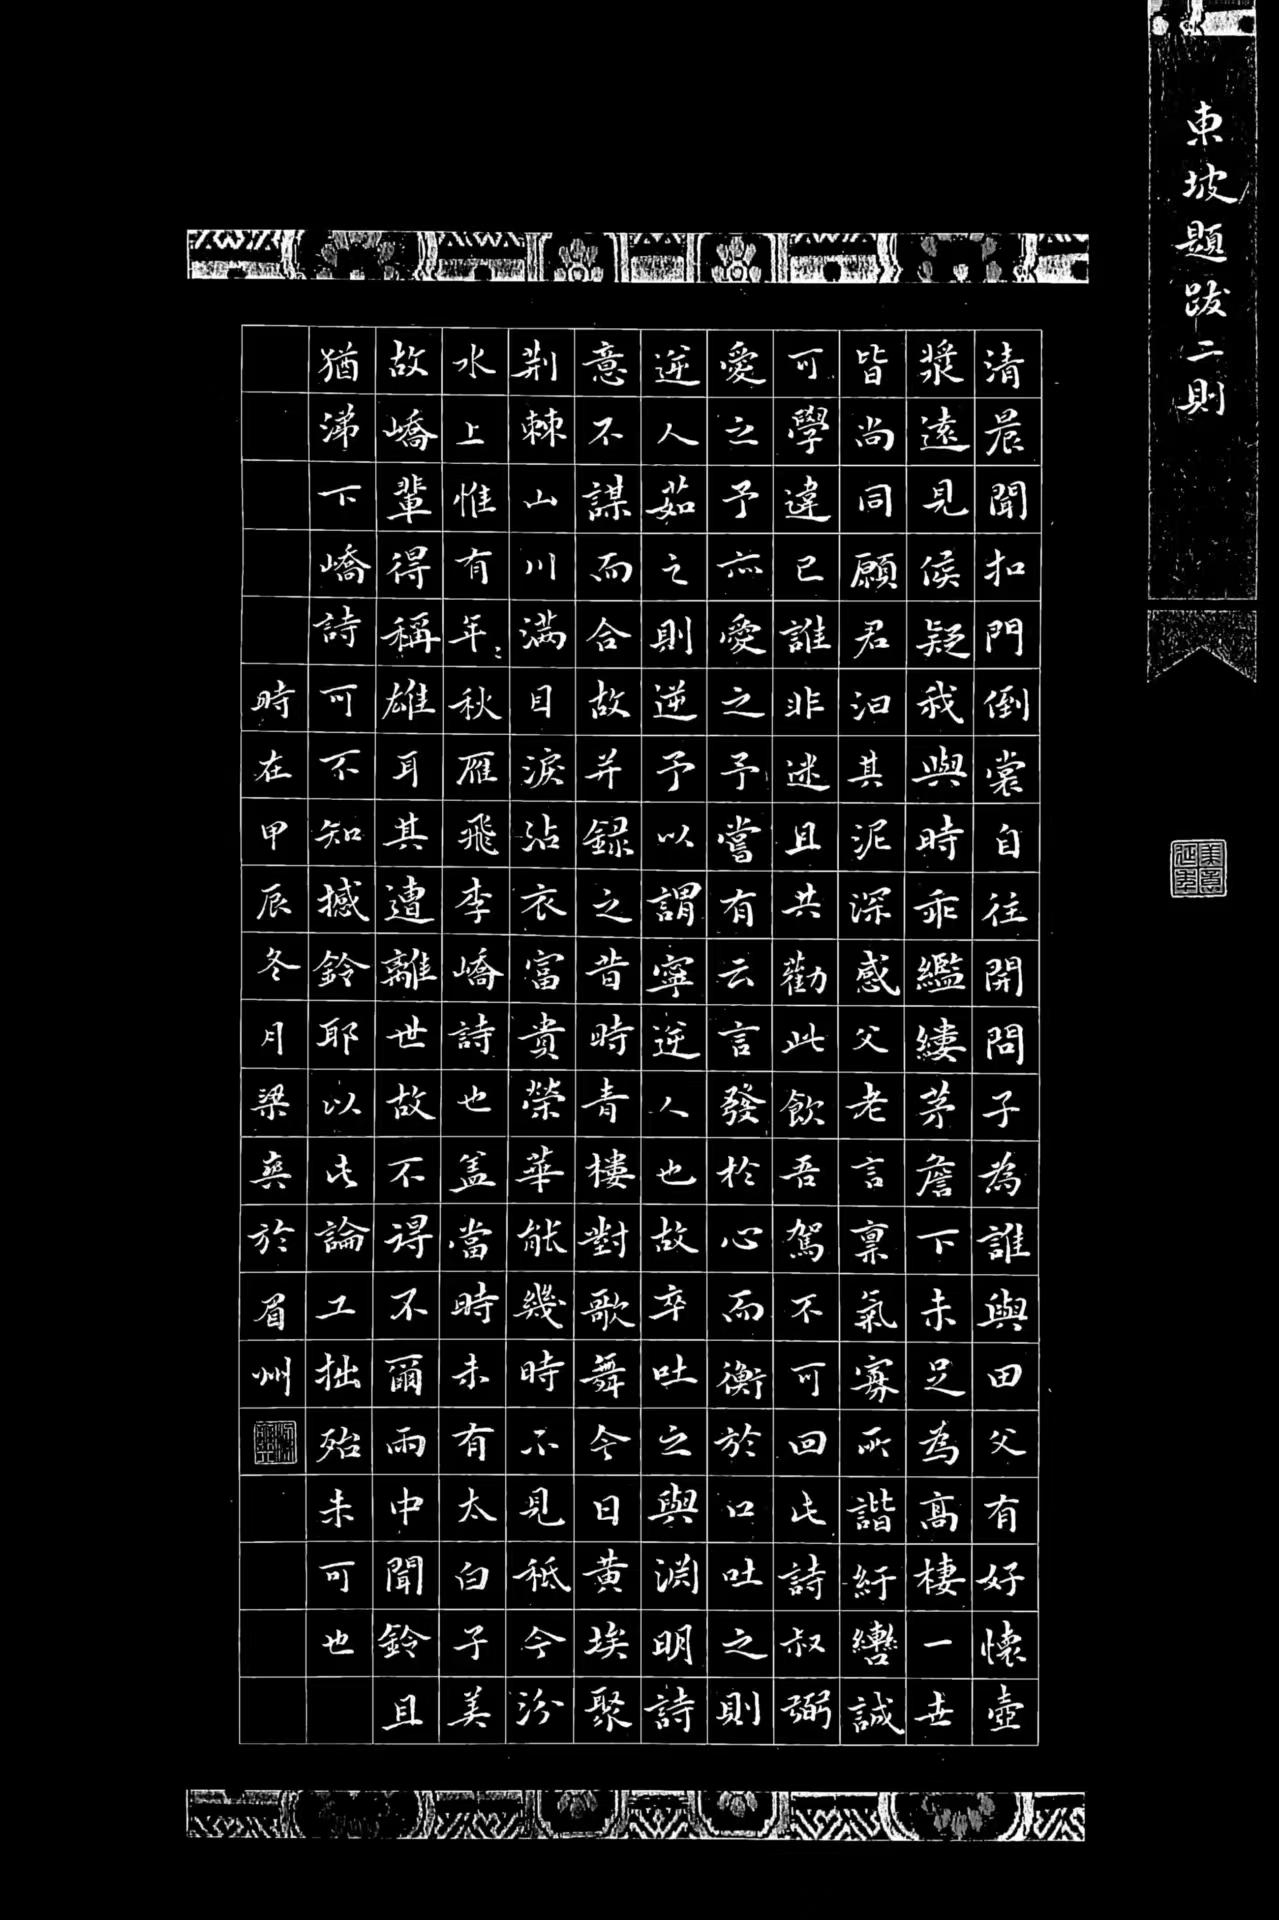 東坡題跋二則
清晨聞扣門倒裳自往開問子為誰與田父有好懷壺
漿遠見候疑我與時乖繿縷茅詹下未足為高棲一世
皆尚同願君汩其泥深感父老言禀氣寡所諧紆轡誠
可學違已誰非迷且共勸此飲吾駕不可回此詩叔弼
愛之予亦愛之予嘗有云言發於心而衝於口吐之則
逆人茹之則逆予以謂寧逆人也故卒吐之與淵明詩
意不謀而合故并録之昔時青樓對歌舞今日黄埃聚
荆棘山川滿目淚沾衣富貴榮華能幾時不見秖今汾
水上惟有年〻秋雁飛李嶠詩也盖當時未有太白子美
故嶠輩得稱雄耳其遭離世故不得不爾雨中聞鈴且
猶涕下嶠詩可不如撼鈴耶以此論工拙殆未可也
時在甲辰冬月梁爽於眉州
美意延年